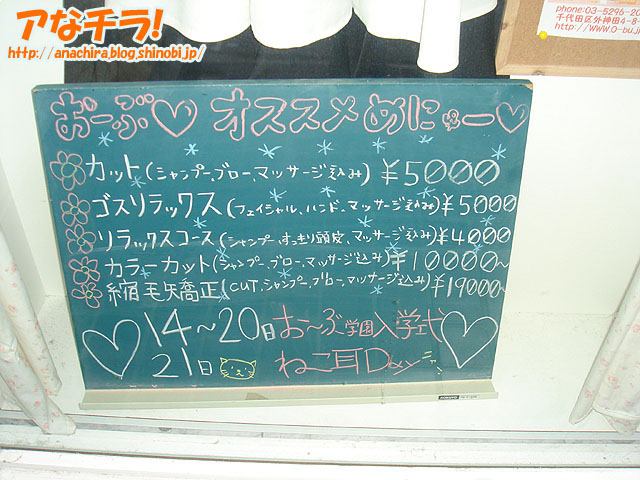 アなチラ!
http://anachira.blog.shinobi.jp/
phone:03-5296-20
千代田区外神田4-8-
http://www.o-bu.j
おーぶ♡ オススメめにゅー♡
カット(シャンプー、ブロー、マッサージ込み) ¥5000
ゴスリラックス(フェイシャル、ハンド、マッサージ込み) ¥5000
リラックスコース(シャンプー、すっきり頭皮、マッサージ込み) ¥4000
カラーカット(シャンプー、ブロー、マッサージ込み) ¥10000~
縮毛矢矯正(CUT、シャンプー、ブロー、マッサージ込み) ¥19000~
14~20日 おーぶ学園入学式
21日 ねこ耳Day